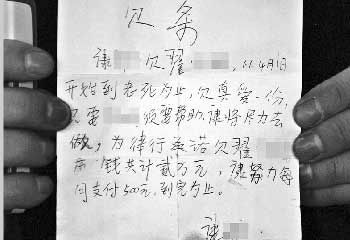 欠条
谦 欠翟 11.4月1日
开始到老死为止,欠真爱一份,
只要 须要帮助,谦将尽力去
做,为律行承诺欠翟
南 钱共计贰万元,谦努力每
月支付500元,到完为止。
谦